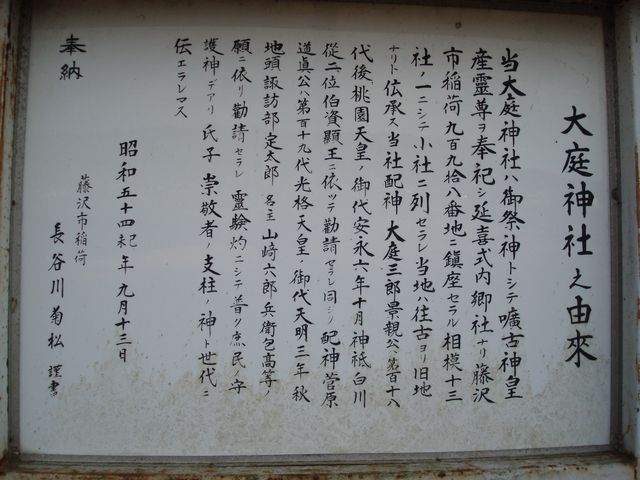 大庭神社之由来
当大庭神社ハ御祭神トシテ嚝古神皇
産霊尊ヲ奉祀シ延喜式内郷社ナリ藤沢
市稲荷九百九拾八番地ニ鎮座セラル相模十三
社ノ一ニシテ小社ニ列セラレ当地ハ往古ヨリ旧地
ナリト伝承ス当社配神大庭三郎景親公ハ第百十八
代後桃園天皇ノ御代安永六年十月神祗白川
従二位伯資顕王ニ依ッテ勧請セラレ同シク配神菅原
道眞公ハ第百十九代光格天皇ノ御代天明三年秋
地頭諏訪部定太郎名主山崎六郎兵衛包高等ノ
願ニ依リ勧請セラレ霊験灼ニシテ普ク庶民ノ守
護神デアリ氏子崇敬者ノ支柱ノ神ト世代ニ
伝エラレマス
昭和五十四己未年九月十三日
藤沢市稲荷
長谷川菊松 謹書
奉納